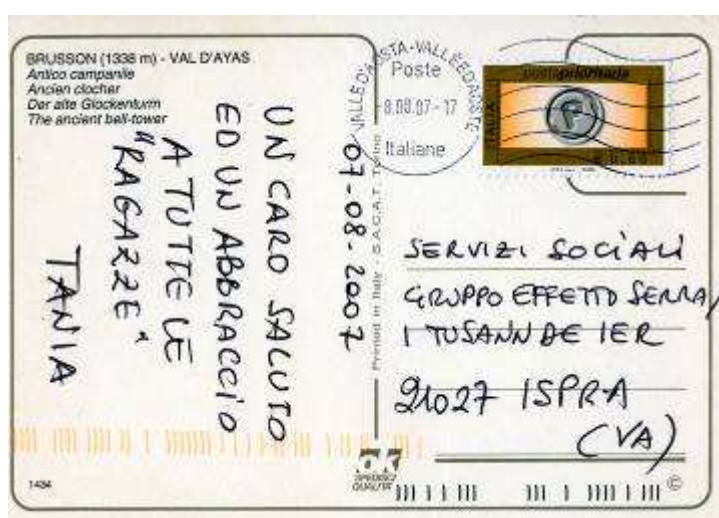 BRUSSON (1338 m) - VAL D'AYAS
Antico campanile
Ancien clocher
Der alte Glockenturm
The ancient bell-tower
07-08-2007
UN CARO SALUTO
ED UN ABBRACCIO
A TUTTE LE
"RAGAZZE"
TANIA
Printed in Italy - S.A.C.A.T. Torino
Poste
8.08.07-17
Italiane
postaprioritaria
ITALIA
€ 0,60
SERVIZI SOCIALI
GRUPPO EFFETTO SERRA/
I TUSANN DE IER
21027 ISPRA
(VA)
1434
OK
QUALITA'
©